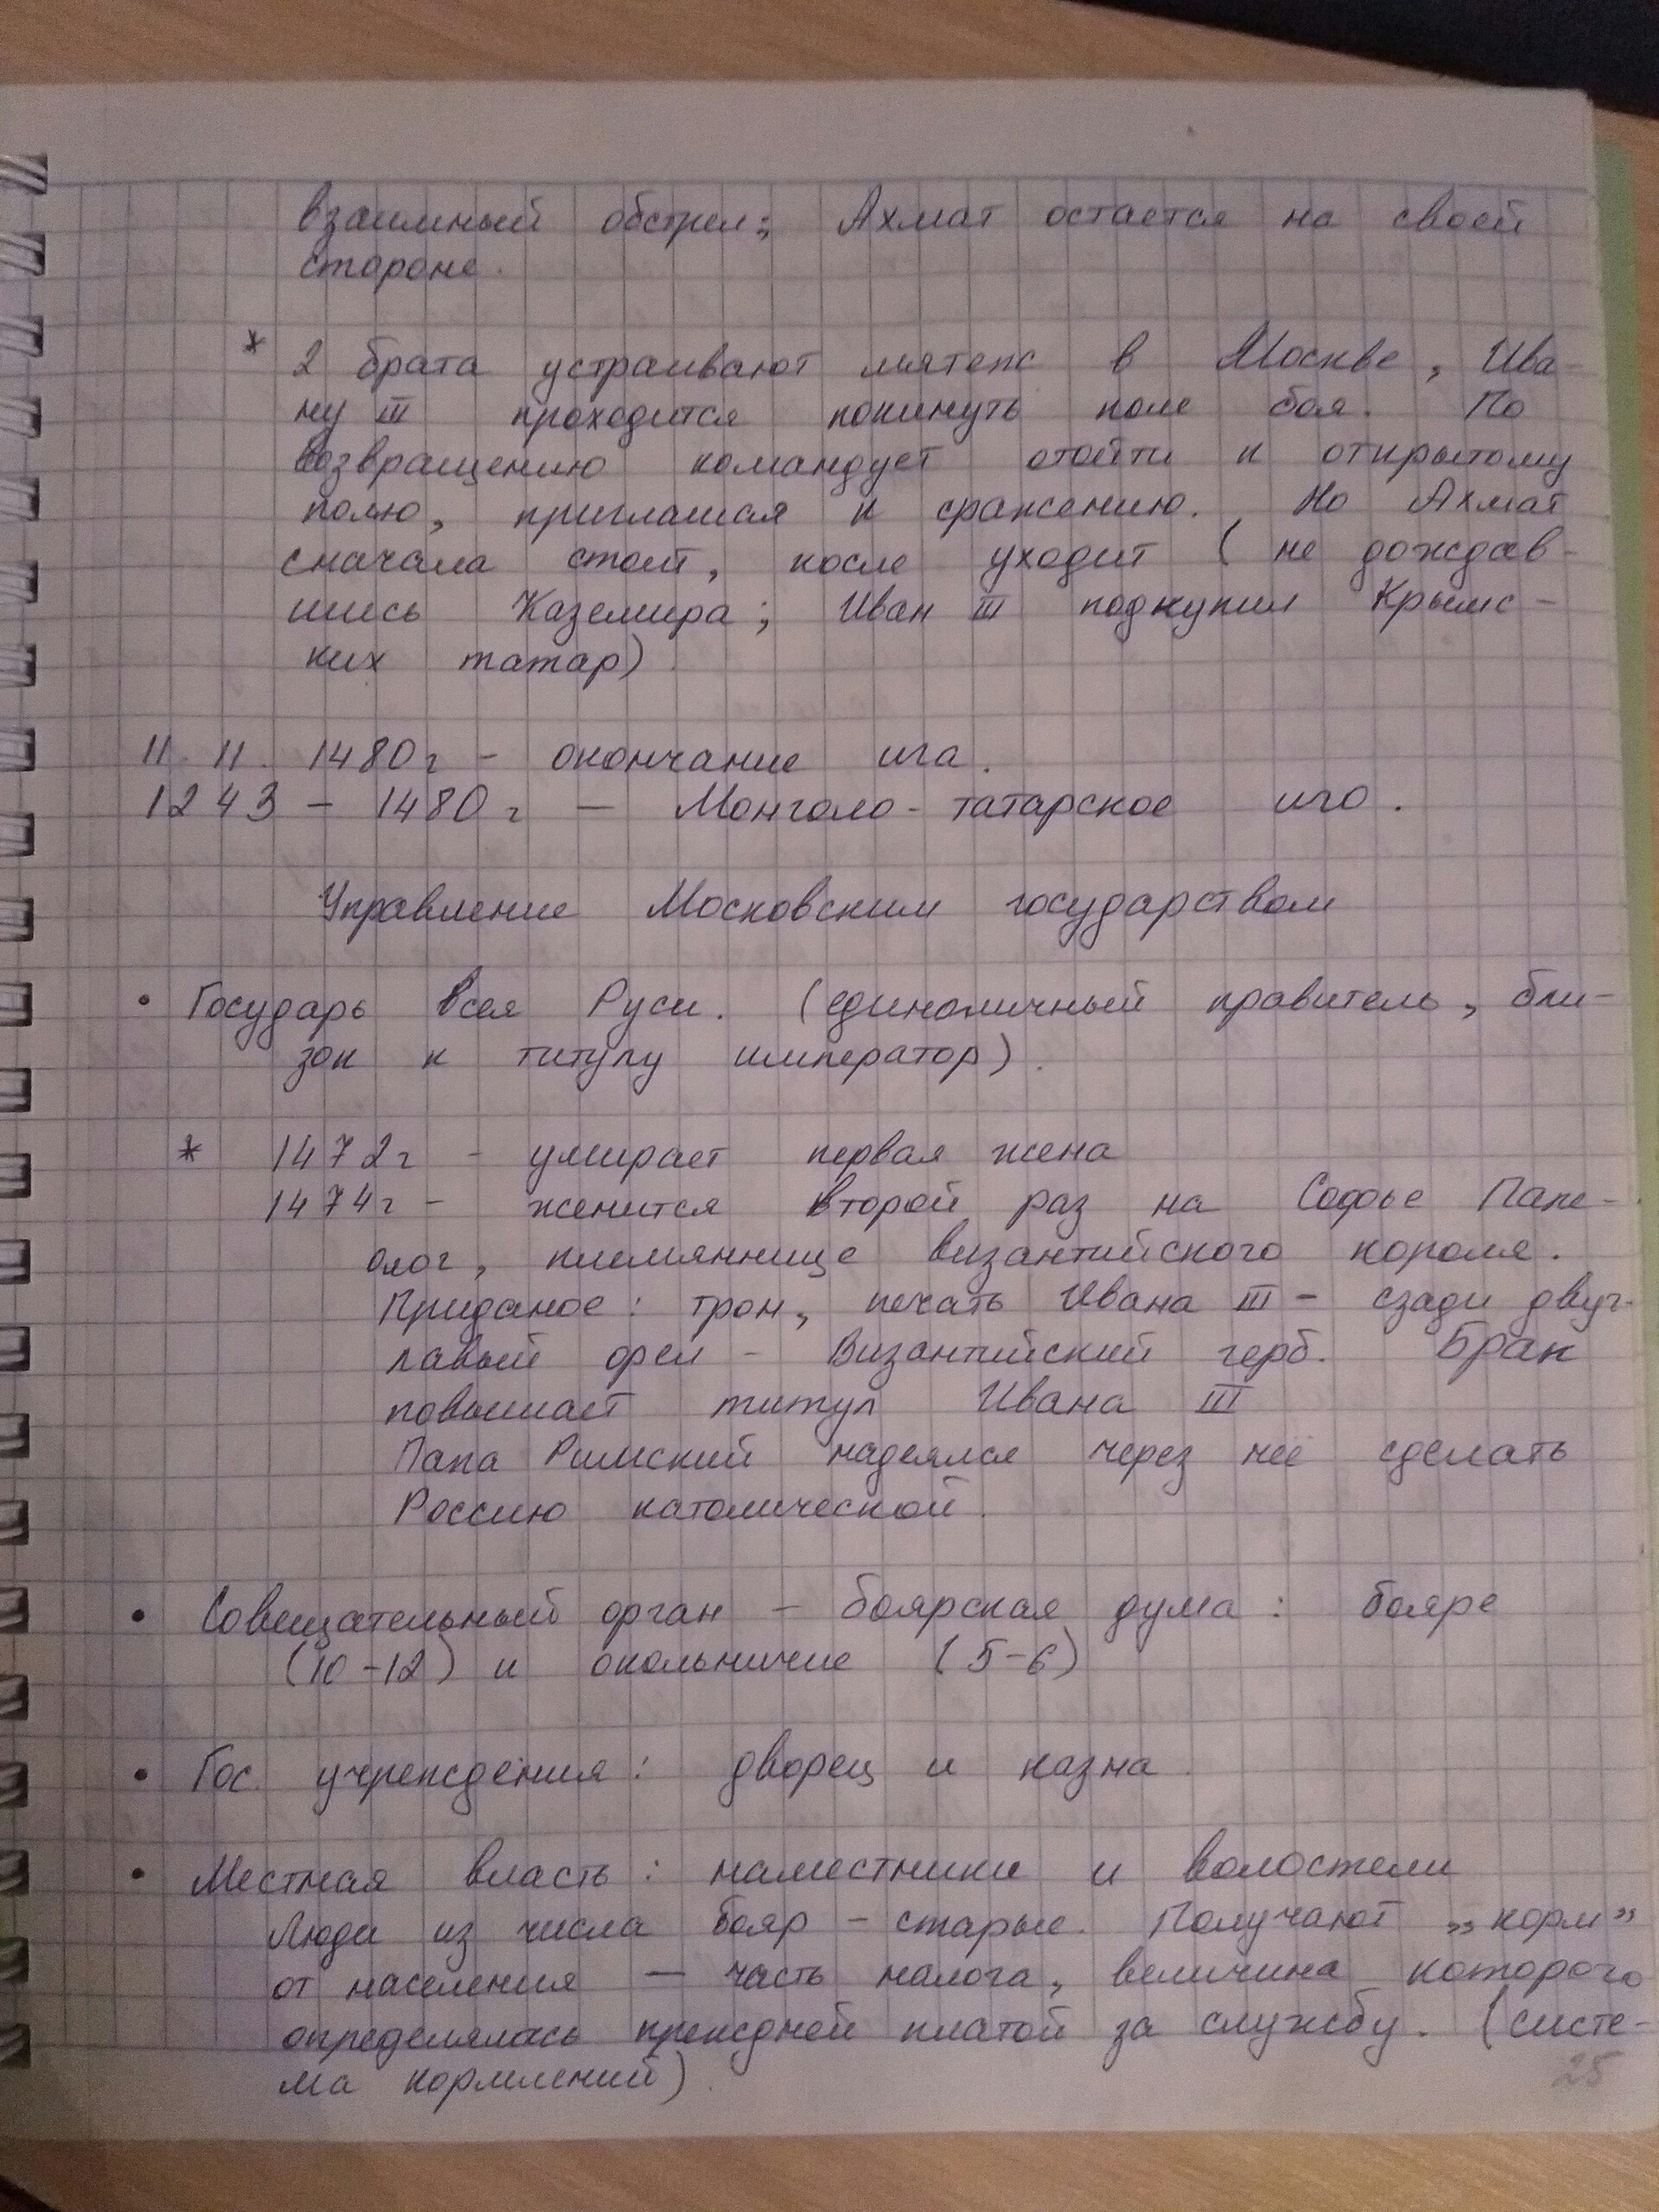 взаимный обстрел; Ахмат остается на своей
стороне.
* 2 брата устраивают мятеж в Москве, Ива-
ну III проходится покинуть поле боя. По
возвращению командует отойти к открытому
полю, приглашая к сражению. Но Ахмат
сначала стоит, после уходит (не дождав-
шись Каземира; Иван III подкупил Крымс-
ких татар).
11. 11. 1480г - окончание ига.
1243 - 1480г - Монголо-татарское иго.
Управление Московским государством
• Государь всея Руси. (единоличный правитель, бли-
зок к титулу император).
* 1472г - умирает первая жена
1474г - женится второй раз на Софье Пале-
олог, племяннице византийского короля.
Приданое: трон, печать Ивана III - сзади двуг-
лавый орел - Византийский герб. Брак
повышает титул Ивана III
Папа Римский надеялся через неё сделать
Россию католической.
• Совещательный орган - боярская дума: бояре
(10-12) и окольничие (5-6)
• Гос. учреждения: дворец и казна.
• Местная власть: наместники и волостели
Люди из числа бояр - старые. Получают „корм”
от населения - часть налога, величина которого
определялась прежней платой за службу. (систе-
ма кормлений).
25